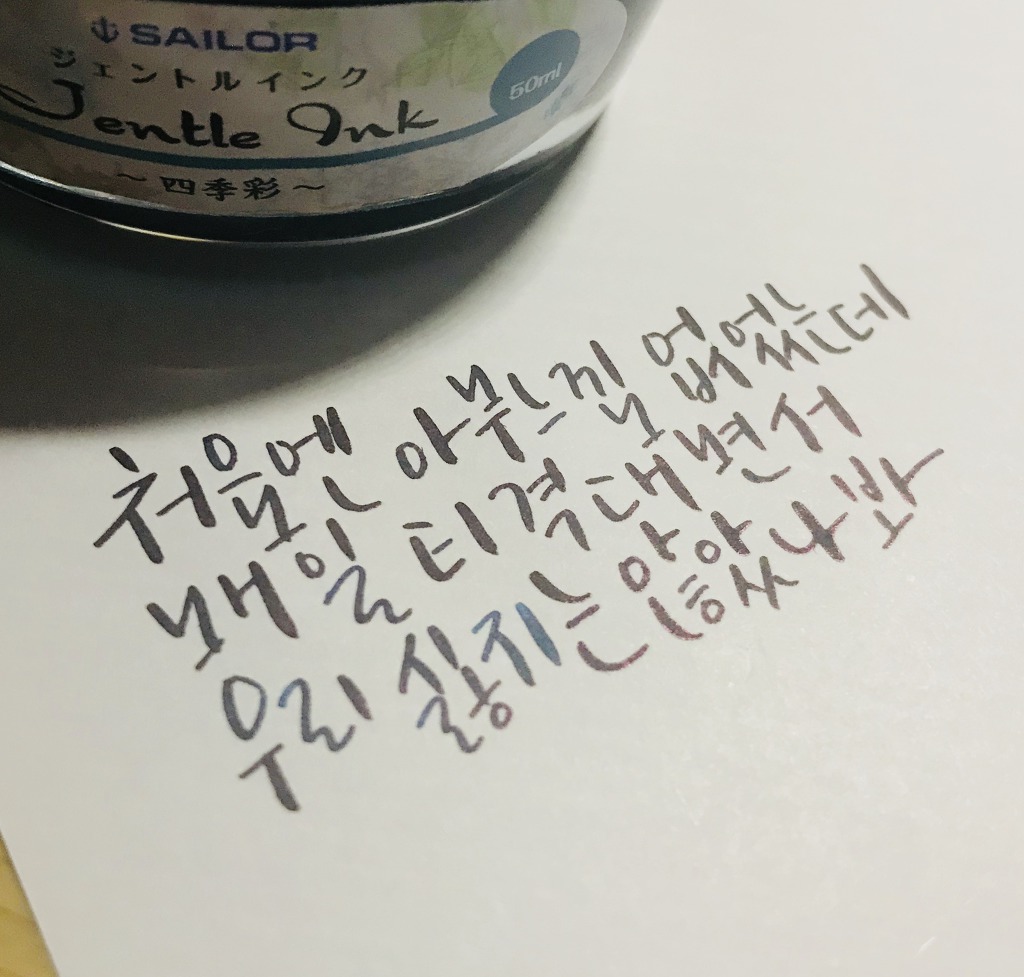 SAILOR
ジェントルインク
Jentle Ink
50ml
~四季彩~
처음엔 아무느낌 없었는데
매일 티격대면서
우리 싫지는 않았나봐